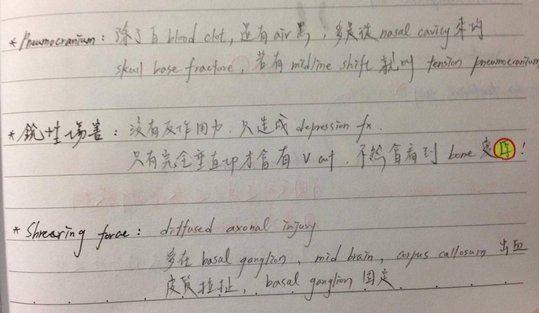 * Pneumocranium: 除了有 blood clot, 還有 air 黑, 多是從 nasal cavity 來的
skull base fracture, 若有 midline shift 就叫 tension pneumocranium
* 鈍性傷害: 沒有反作用力, 只造成 depression fx.
只有完全垂直切才會有 V cut, 不然會看到 bone 變厚!
* Shearing force: diffused axonal injury
多在 basal ganglion, mid brain, corpus callosum 出血
皮質拉扯, basal ganglion 固定